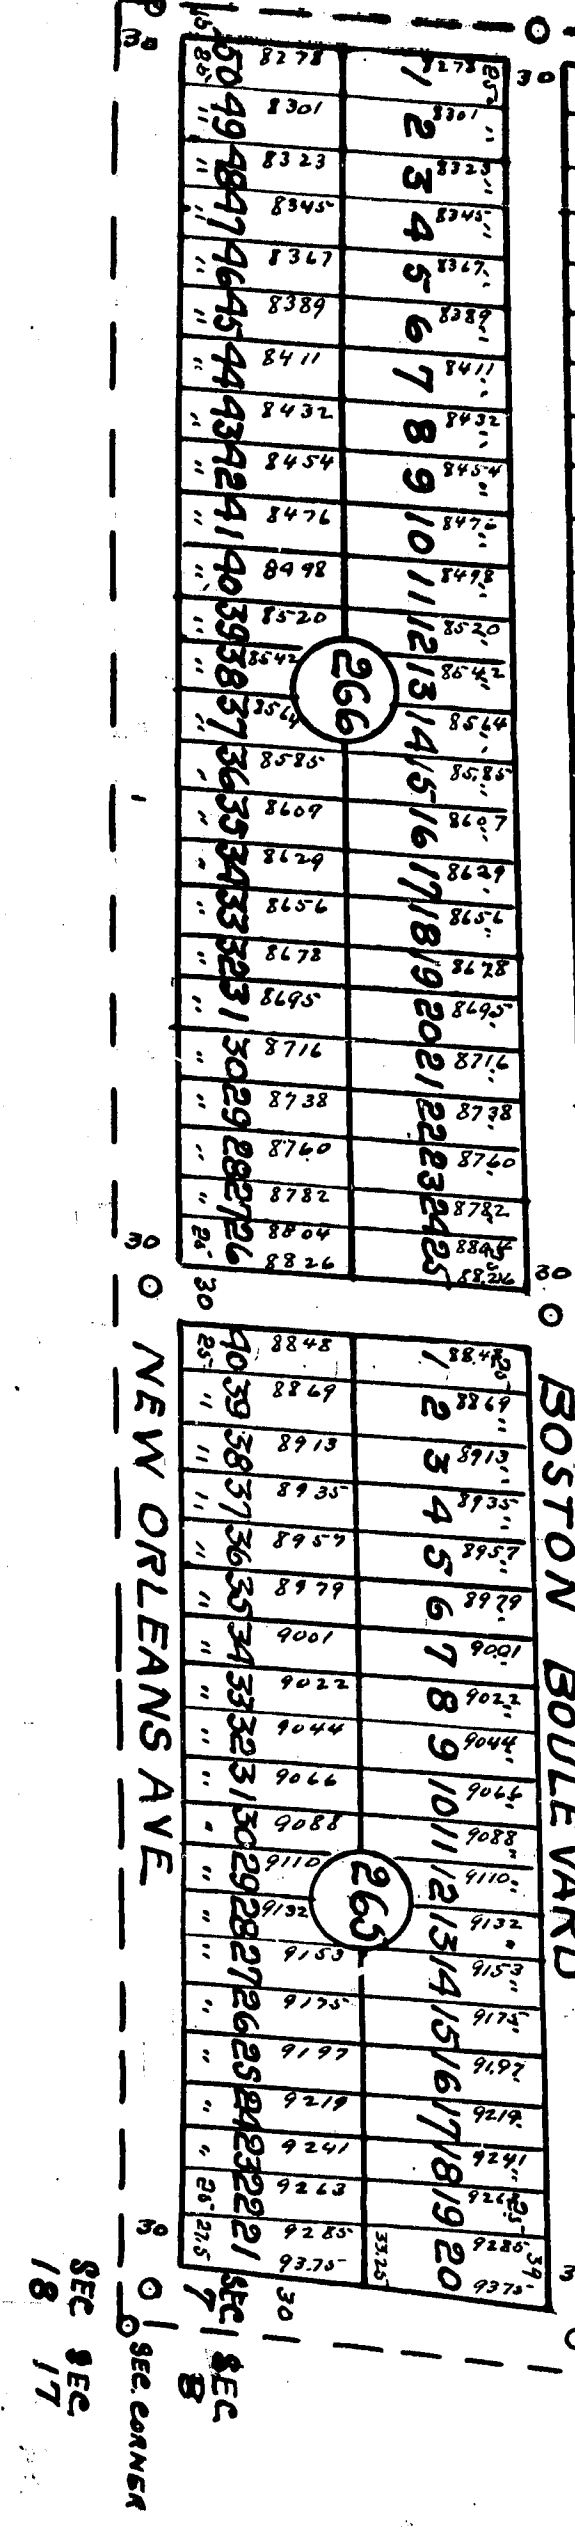 30
50 8278 1 8278 25 30
49 8301 2 8301 "
48 8323 3 8323 "
47 8345 4 8345 "
46 8367 5 8367 "
45 8389 6 8389 "
44 8411 7 8411 "
43 8432 8 8432 "
42 8454 9 8454 "
41 8476 10 8476 "
40 8498 11 8498 "
39 8520 12 8520 "
38 8542 13 8542 "
266
37 8564 14 8564 "
36 8585 15 8585
35 8609 16 8607
34 8629 17 8629
33 8656 18 8656
32 8678 19 8678
31 8695 20 8695
30 8716 21 8716
29 8738 22 8738
28 8760 23 8760
27 8782 24 8782
30 25 26 8804 25 8804
8826 8826 30
30
25 40 8848 1 8848 25
" 39 8869 2 8869 "
" 38 8913 3 8913 "
" 37 8935 4 8935 "
" 36 8957 5 8957 "
" 35 8979 6 8979 "
" 34 9001 7 9001 "
" 33 9022 8 9022 "
" 32 9044 9 9044 "
" 31 9066 10 9066 "
" 30 9088 11 9088 "
" 29 9110 12 9110 "
265
" 28 9132 13 9132 "
" 27 9153 14 9153 "
" 26 9175 15 9175
" 25 9197 16 9197
" 24 9219 17 9219
" 23 9241 18 9241 "
25 22 9263 19 9263 25
30 27.5 21 9285 33.25 20 9285 39
93.75 93.75
30
BOSTON BOULEVARD
NEW ORLEANS AVE
SEC 7
SEC 8
SEC 18
SEC 17
SEC. CORNER